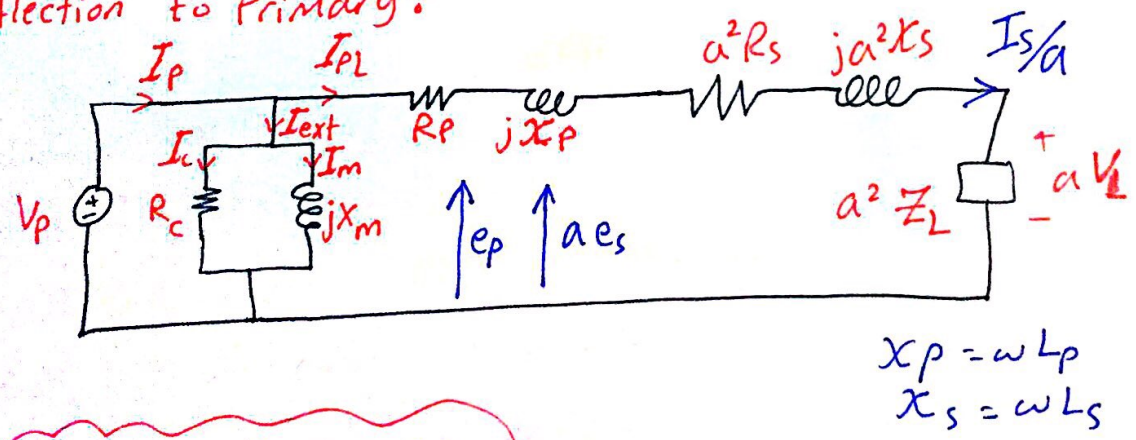 flection to Primary.
Ip
IPL
a²Rs
ja²Xs
Is/a
Iext
Rp
jXp
Ic
Im
Vp
Rc
jXm
ep
a es
a² ZL
+
a VL
-
Xp = ωLp
Xs = ωLs